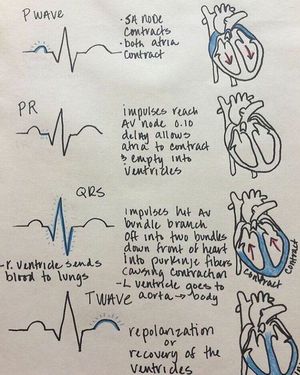 P WAVE
• SA NODE
contracts
• both atria
contract
PR
impulses reach
AV node 0.10
delay allows
atria to contract
& empty into
ventricles
QRS
impulses hit AV
bundle branch
off into two bundles
down front of heart
into purkinje fibers
causing contraction
-r. ventricle sends
blood to lungs
-L ventricle goes to
aorta → body
contract
contract
T WAVE
repolarization
or
recovery of the
ventricles